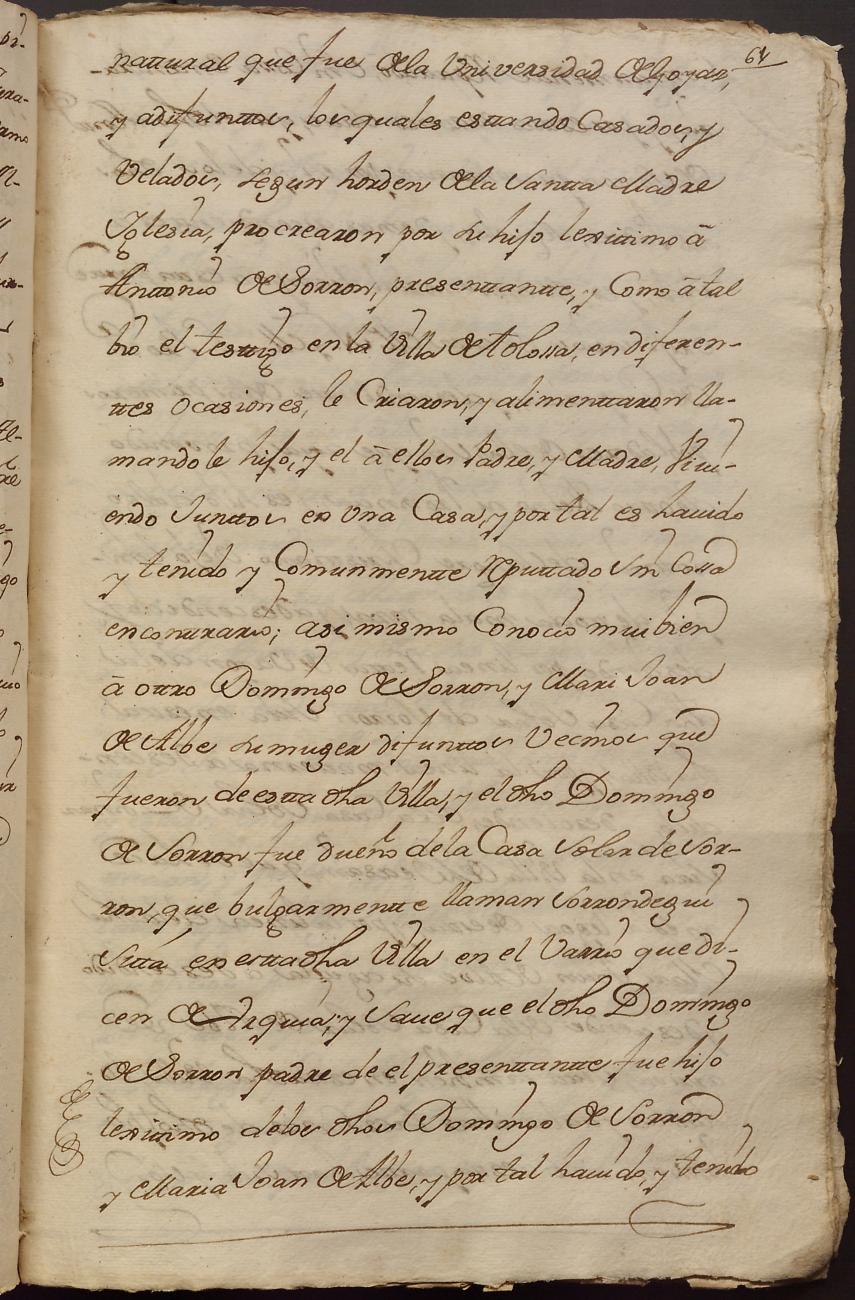 64
natural que fue de la Universidad de Goyaz,
y adifunttos, los quales esttando Casados, y
Velados, segun horden de la Santta Madre
Yglesia, procrearon por su hijo lexitimo â
Anttonio de Sorron, presenttantte, y Como â tal
bio el testtigo en la Villa de tolossa, en diferen-
ttes ocasiones, le Criaron, y alimenttaron lla-
mandole hijo, y el â ellos Padre, y Madre, Vivi-
endo Junttos en Vna Casa, y por tal es havido
y tenido y Comunmentte Reputtado sin Cossa
en conttrario; asi mismo Conocio mui bien
â ottro Domingo de Sorron, y Mari Joan
de Albe su muger difunttos Vecinos que
fueron de estta dha Villa, y el dho Domingo
de Sorron fue dueño de la Casa Solar de Sor-
ron, que bulgarmentte llaman Sorrondegui
Sitta en estta dha Villa en el Varrio que di-
cen de Arguia, y Save que el dho Domingo
de Sorron padre de el presenttantte fue hijo
lexitimo de los dhos Domingo de Sorron
y Maria Joan de Albe, y por tal havido, y tenido